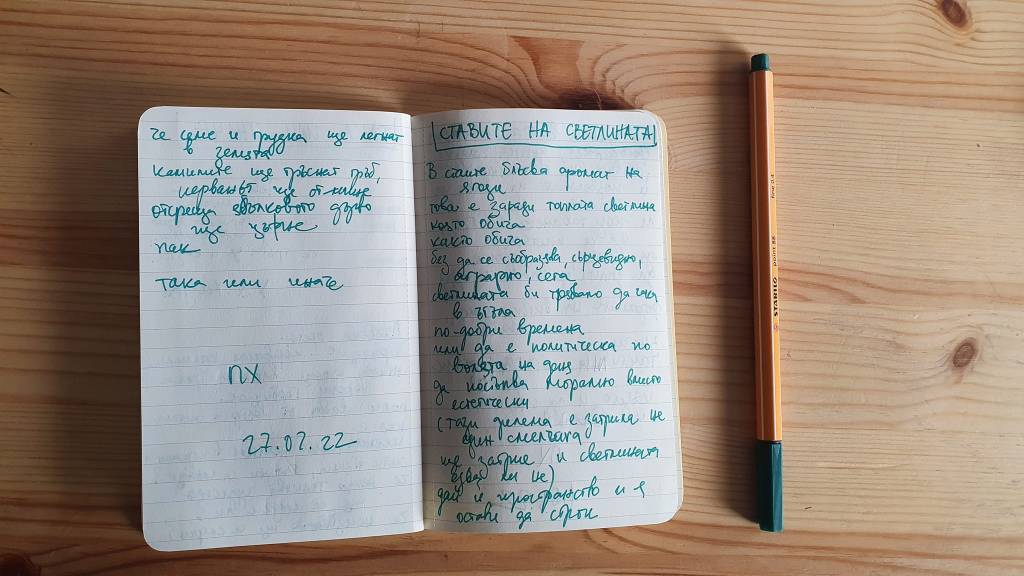 че семе и грудка ще легнат
в земята
камилите ще тръснат гръб,
керванът ще
отсреща ябълковото дърво
ще цъфне
пак
така или иначе
ПХ
27.02.22
СТАВИТЕ НА СВЕТЛИНАТА
В стаите блъсва аромат на
ягоди
това е заради топлата светлина
която обича
както обича
без да се съобразява, сърцевидно,
аграрно, сега
светлината би трябвало да чака
в ъгъла
по-добри времена
или да е политическа по
волята на деня
да постъпва морално вместо
естетически
(тази дилема е затрила не
един смелчага
ще затрие и светлината
едва ли не)
дай и пространство и я
остави да
STABILO
point 88
fine 0.4